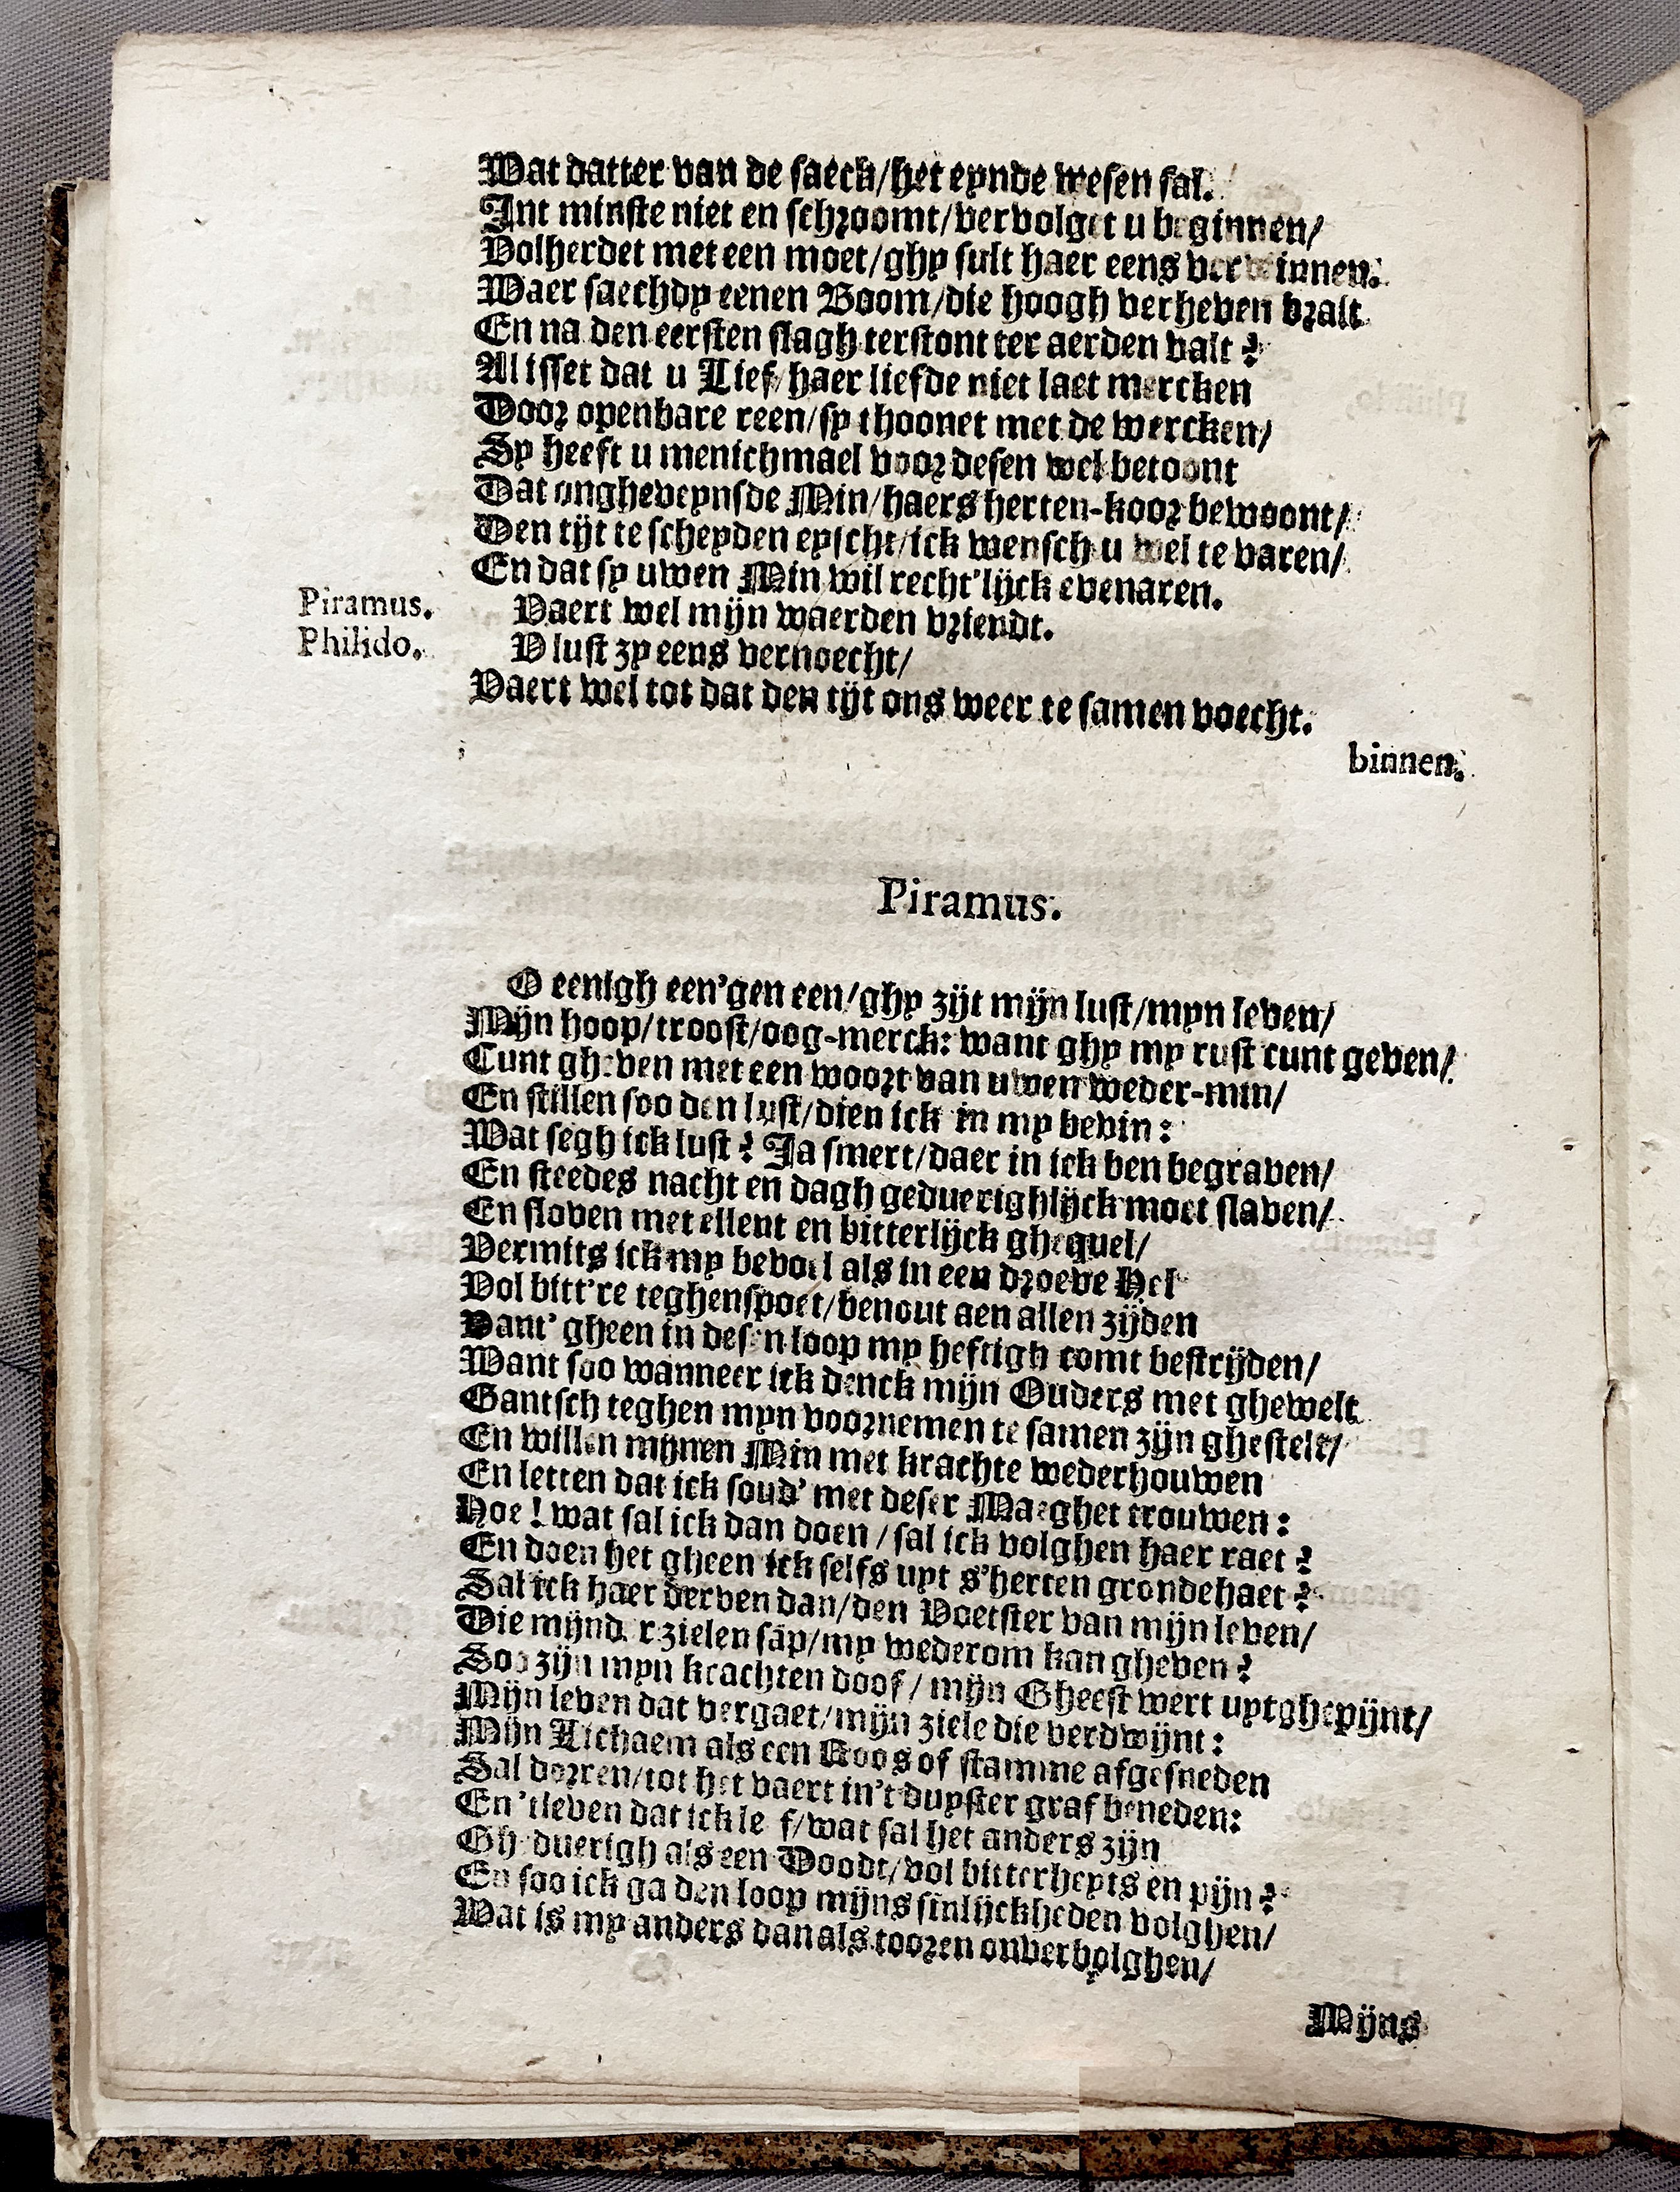 Wat datter van de saeck/het eynde wesen sal.
Int minste niet en schroomt/vervolget u beginnen/
Volherdet met een moet/ghy sult haer eens verwinnen.
Waer saechdy eenen Boom/die hoogh verheven bralt
En na den eersten slagh terstont ter aerden valt?
Al isset dat u Lief/haer liefde niet laet mercken
Door openbare reen/sy thoonet met de wercken/
Sy heeft u menichmael voor desen wel betoont
Dat ongheveynsde Min/haers herten-koor bewoont/
Den tijt te scheyden eyscht/ick wensch u wel te varen/
En dat sy uwen Min wil recht'lijck evenaren.
Piramus. Vaert wel mijn waerden vriendt.
Philido. V lust zy eens vernoecht/
Vaert wel tot dat den tijt ons weer te samen voecht.
binnen.
Piramus.
O eenigh een'gen een/ghy zijt mijn lust/myn leven/
Mijn hoop/troost/oog-merck: want ghy my rust cunt geven/
Cunt gheven met een woort van uwen weder-min/
En stillen soo den lust/dien ick in my bevin:
Wat segh ick lust? Ja smert/daer in ick ben begraven/
En steedes nacht en dagh geduerighlijck moet slaven/
En sloven met ellent en bitterlijck ghequel/
Vermits ick my bevoel als in een droeve Hel
Vol bitt're teghenspoet/benout aen allen zijden
Vant' gheen in desen loop my heftigh comt bestrijden/
Want soo wanneer ick denck mijn Ouders met ghewelt
Gantsch teghen myn voornemen te samen zijn ghestelt/
En willen mijnen Min met krachte wederhouwen
En letten dat ick soud' met deser Maeghet trouwen:
Hoe! wat sal ick dan doen/sal ick volghen haer raet?
En doen het gheen ick selfs uyt s'herten gronde haet?
Sal ick haer derven dan/den Voetster van mijn leven/
Die mijnder zielen sap/my wederom kan gheven?
Soo zijn myn krachten doof/mijn Gheest wert uytghepijnt/
Mijn leven dat vergaet/mijn ziele die verdwijnt:
Mijn Lichaem als een Roos of stamme afgesneden
Sal dorren/tot het vaert in't duyster graf beneden:
En 'tleven dat ick leef/wat sal het anders zijn
Gheduerigh als een Doodt/vol bitterheyts en pijn?
En soo ick ga den loop mijns sinlijckheden volghen/
Wat is my anders dan als tooren onverbolghen/
Mijns